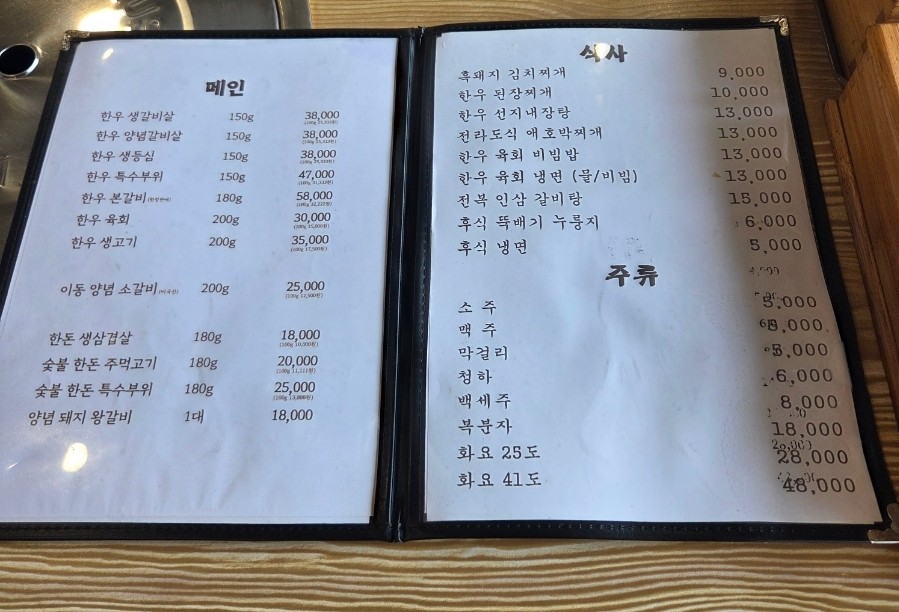 메인
한우 생갈비살 150g 38,000
한우 양념갈비살 150g 38,000
한우 생등심 150g 38,000
한우 특수부위 150g 47,000
한우 본갈비 180g 58,000
한우 육회 200g 30,000
(100g 15,000원)
한우 생고기 200g 35,000
(100g 17,500원)
이동 양념 소갈비 200g 25,000
(100g 12,500원)
한돈 생삼겹살 180g 18,000
(100g 10,000원)
숯불 한돈 주먹고기 180g 20,000
(100g 11,111원)
숯불 한돈 특수부위 180g 25,000
양념 돼지 왕갈비 1대 18,000
식사
흑돼지 김치찌개 9,000
한우 된장찌개 10,000
한우 선지내장탕 13,000
전라도식 애호박찌개 13,000
한우 육회 비빔밥 13,000
한우 육회 냉면 (물/비빔) 13,000
전복 인삼 갈비탕 15,000
후식 뚝배기 누룽지 6,000
후식 냉면 5,000
주류
소주 5,000
맥주 5,000
막걸리 5,000
청하 6,000
백세주 8,000
복분자 18,000
화요 25도 28,000
화요 41도 48,000